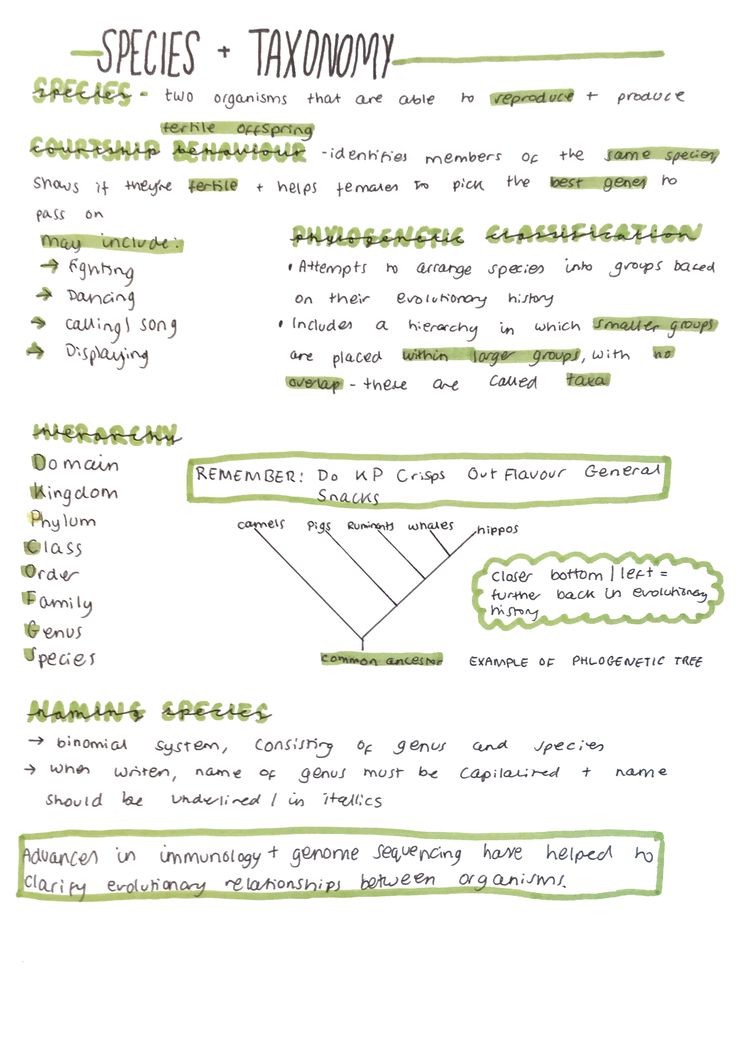 SPECIES + TAXONOMY
SPECIES - two organisms that are able to reproduce + produce
fertile offspring
COURTSHIP BEHAVIOUR - identifies members of the same species,
shows if they're fertile + helps females to pick the best genes to
pass on
may include:
→ Fighting
→ Dancing
→ calling / song
→ Displaying
PHYLOGENETIC CLASSIFICATION
• Attempts to arrange species into groups based
on their evolutionary history
• Includes a hierarchy in which smaller groups
are placed within larger groups, with no
overlap - these are called taxa
HIERARCHY
Domain
Kingdom
Phylum
Class
Order
Family
Genus
Species
REMEMBER: Do KP Crisps Out Flavour General
Snacks
camels pigs Ruminants whales hippos
closer bottom / left =
further back in evolutionary
history
common ancestor EXAMPLE OF PHLOGENETIC TREE
NAMING SPECIES
→ binomial system, consisting of genus and species
→ when writen, name of genus must be capilalised + name
should be underlined / in itallics
Advances in immunology + genome sequencing have helped to
clarify evolutionary relationships between organisms.